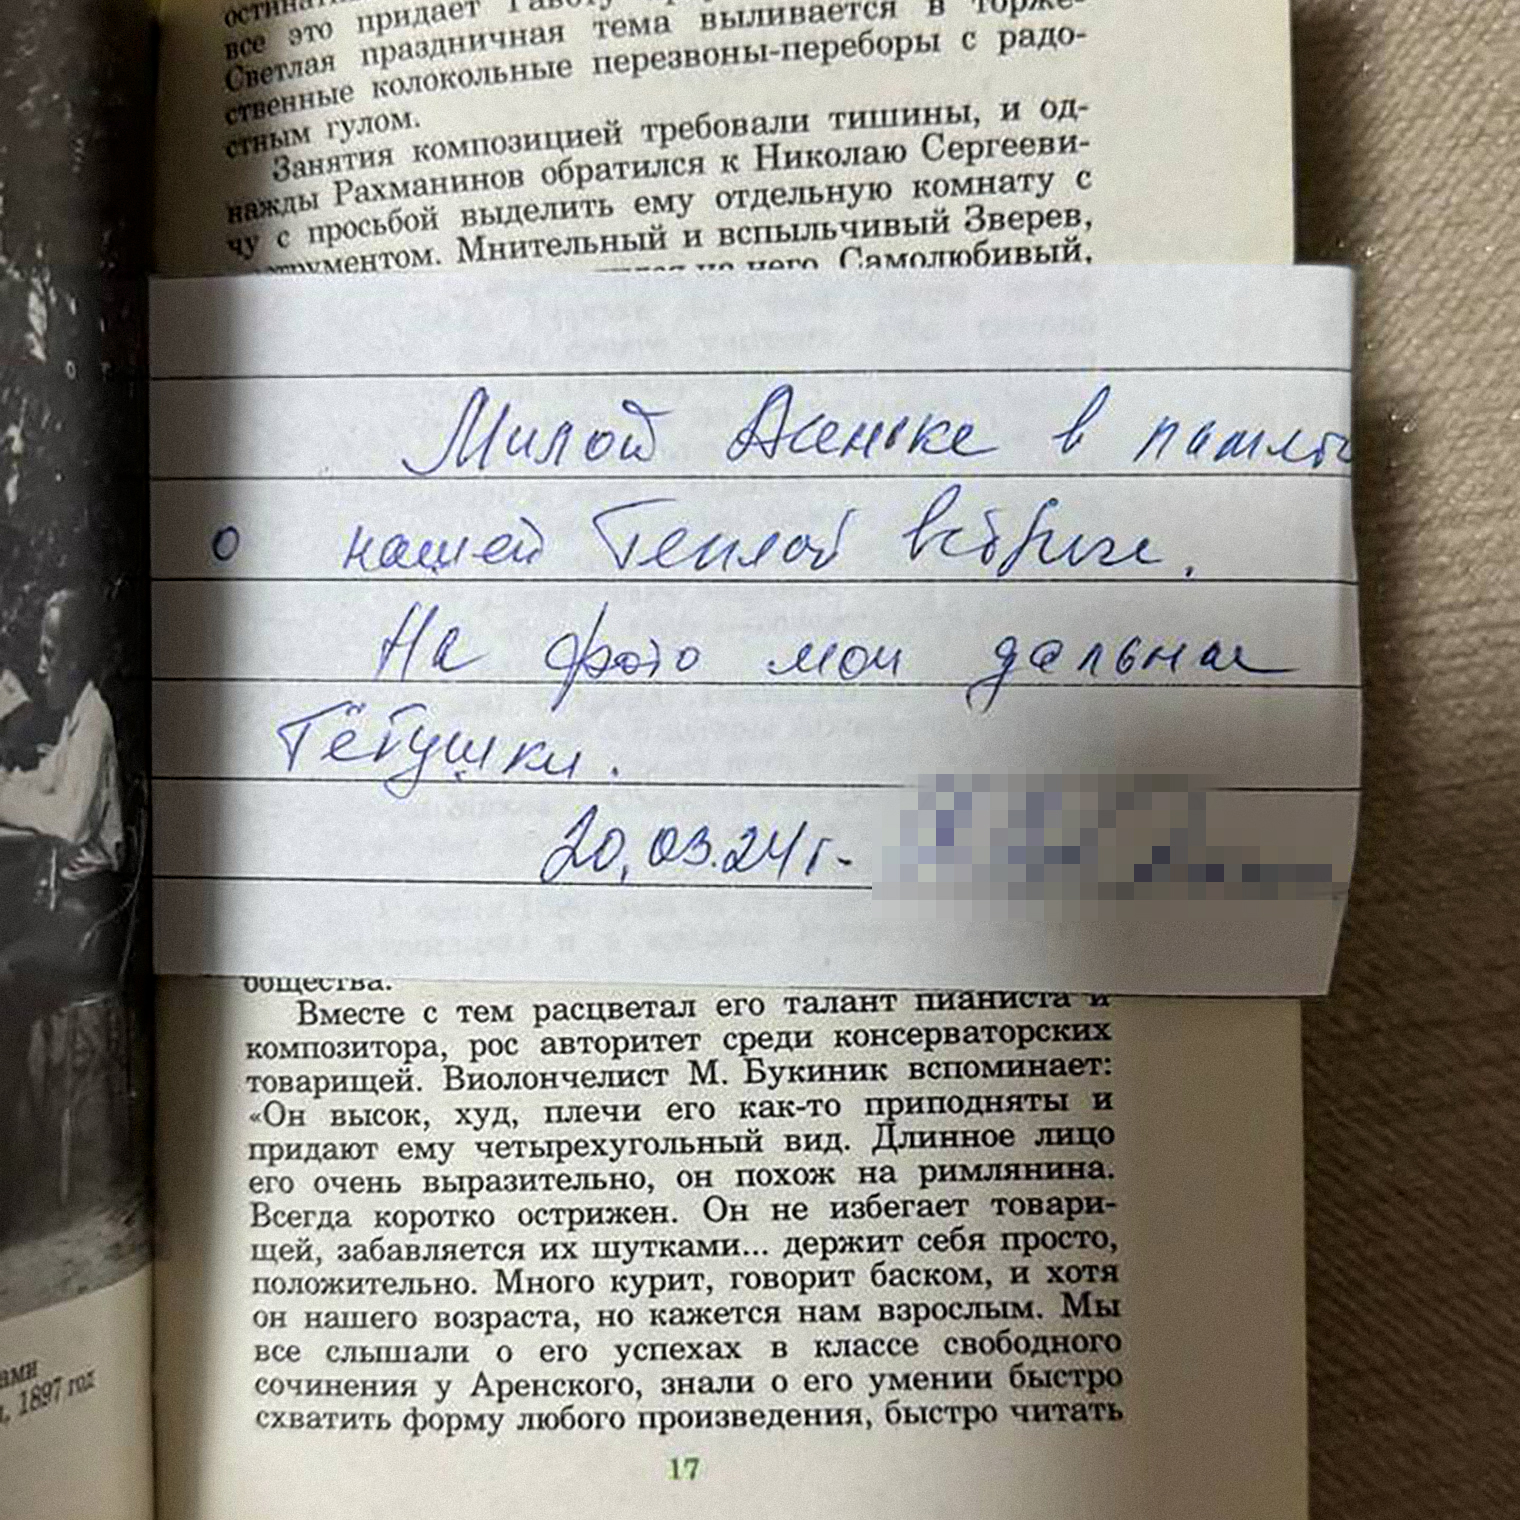 все это придает
Светлая праздничная тема выливается в торже-
ственные колокольные перезвоны-переборы с радо-
стным гулом.
Занятия композицией требовали тишины, и од-
нажды Рахманинов обратился к Николаю Сергееви-
чу с просьбой выделить ему отдельную комнату с
инструментом. Мнительный и вспыльчивый Зверев,
на него. Самолюбивый,
Милой Асеньке в память
о нашей теплой встрече.
На фото мои дальние
тётушки.
20.03.24 г.
общества.
Вместе с тем расцветал его талант пианиста и
композитора, рос авторитет среди консерваторских
товарищей. Виолончелист М. Букиник вспоминает:
«Он высок, худ, плечи его как-то приподняты и
придают ему четырехугольный вид. Длинное лицо
его очень выразительно, он похож на римлянина.
Всегда коротко острижен. Он не избегает товари-
щей, забавляется их шутками... держит себя просто,
положительно. Много курит, говорит баском, и хотя
он нашего возраста, но кажется нам взрослым. Мы
все слышали о его успехах в классе свободного
сочинения у Аренского, знали о его умении быстро
схватить форму любого произведения, быстро читать
17
1897 год